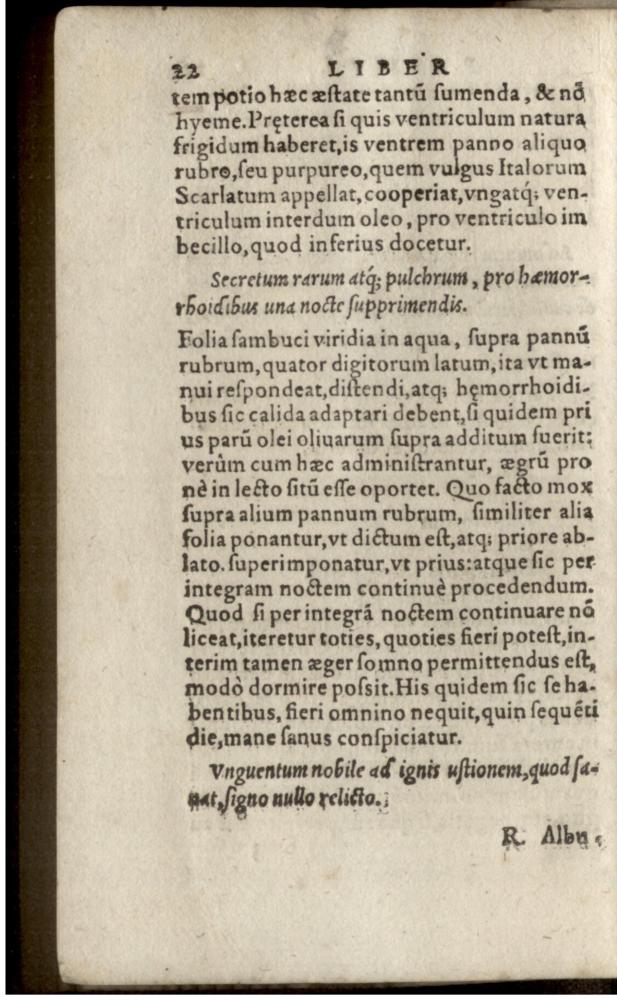 22 LIBER
tem potio hæc æſtate tantū ſumenda, & nō
hyeme. Pręterea ſi quis ventriculum natura
frigidum haberet, is ventrem panno aliquo
rubro, ſeu purpureo, quem vulgus Italorum
Scarlatum appellat, cooperiat, vngatq́; ven-
triculum interdum oleo, pro ventriculo im
becillo, quod inferius docetur.
Secretum rarum atq́; pulchrum, pro hæmor-
rhoidibus una nocte ſupprimendis.
Folia ſambuci viridia in aqua, ſupra pannū
rubrum, quator digitorum latum, ita vt ma-
nui reſpondeat, diſtendi, atq; hęmorrhoidi-
bus ſic calida adaptari debent, ſi quidem pri
us parū olei oliuarum ſupra additum fuerit:
verùm cum hæc adminiſtrantur, ægrū pro
nè in lecto ſitū eſſe oportet. Quo facto mox
ſupra alium pannum rubrum, ſimiliter alia
folia ponantur, vt dictum eſt, atq; priore ab-
lato. ſuperimponatur, vt prius: atque ſic per
integram noctem continuè procedendum.
Quod ſi per integrā noctem continuare nō
liceat, iteretur toties, quoties fieri poteſt, in-
terim tamen æger ſomno permittendus eſt,
modò dormire poſsit. His quidem ſic ſe ha-
bentibus, fieri omnino nequit, quin ſequēti
die, mane ſanus conſpiciatur.
Vnguentum nobile ad ignis uſtionem, quod ſa-
nat, ſigno nullo relicto.
R. Albu